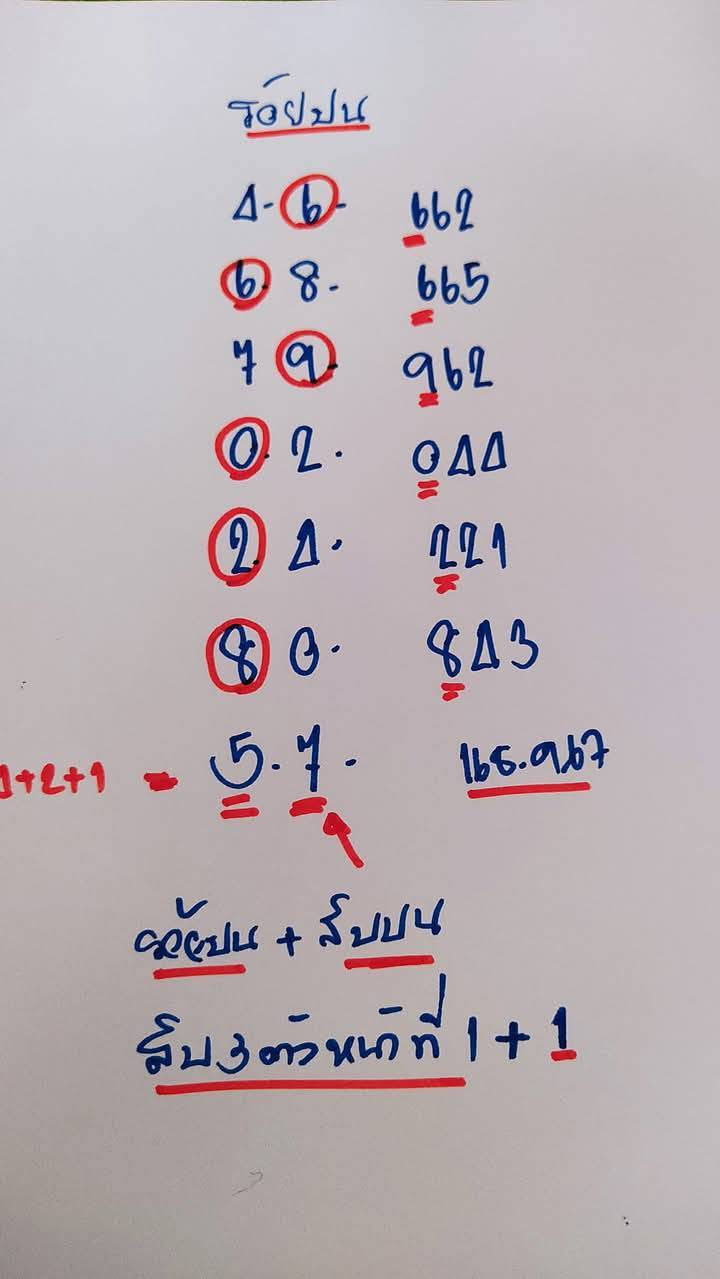 ร้อยบน
4. 6. 662
6. 8. 665
7 9. 962
0. 2. 044
2. 4. 221
8. 0. 843
1+2+1 = 5. 7. 168.967
ร้อยบน + สิบบน
สิบ 3 ตัวหน้าที่ 1 + 1